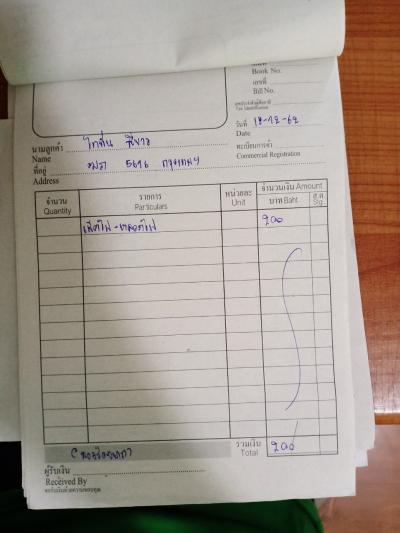 Book No.
เลขที่
Bill No.
เลขประจำตัวผู้เสียภาษี
Tax Identification
วันที่ 18-12-62
Date
นามลูกค้า
Name
ทะเบียนการค้า
Commercial Registration
ที่อยู่ 5616 กรุงเทพฯ
Address
จำนวน รายการ หน่วยละ จำนวนเงิน Amount
Quantity Particulars Unit บาท Baht ส.ต. Stg.
หลอดไฟ 200
รวมเงิน
Total 200
ผู้รับเงิน
Received By